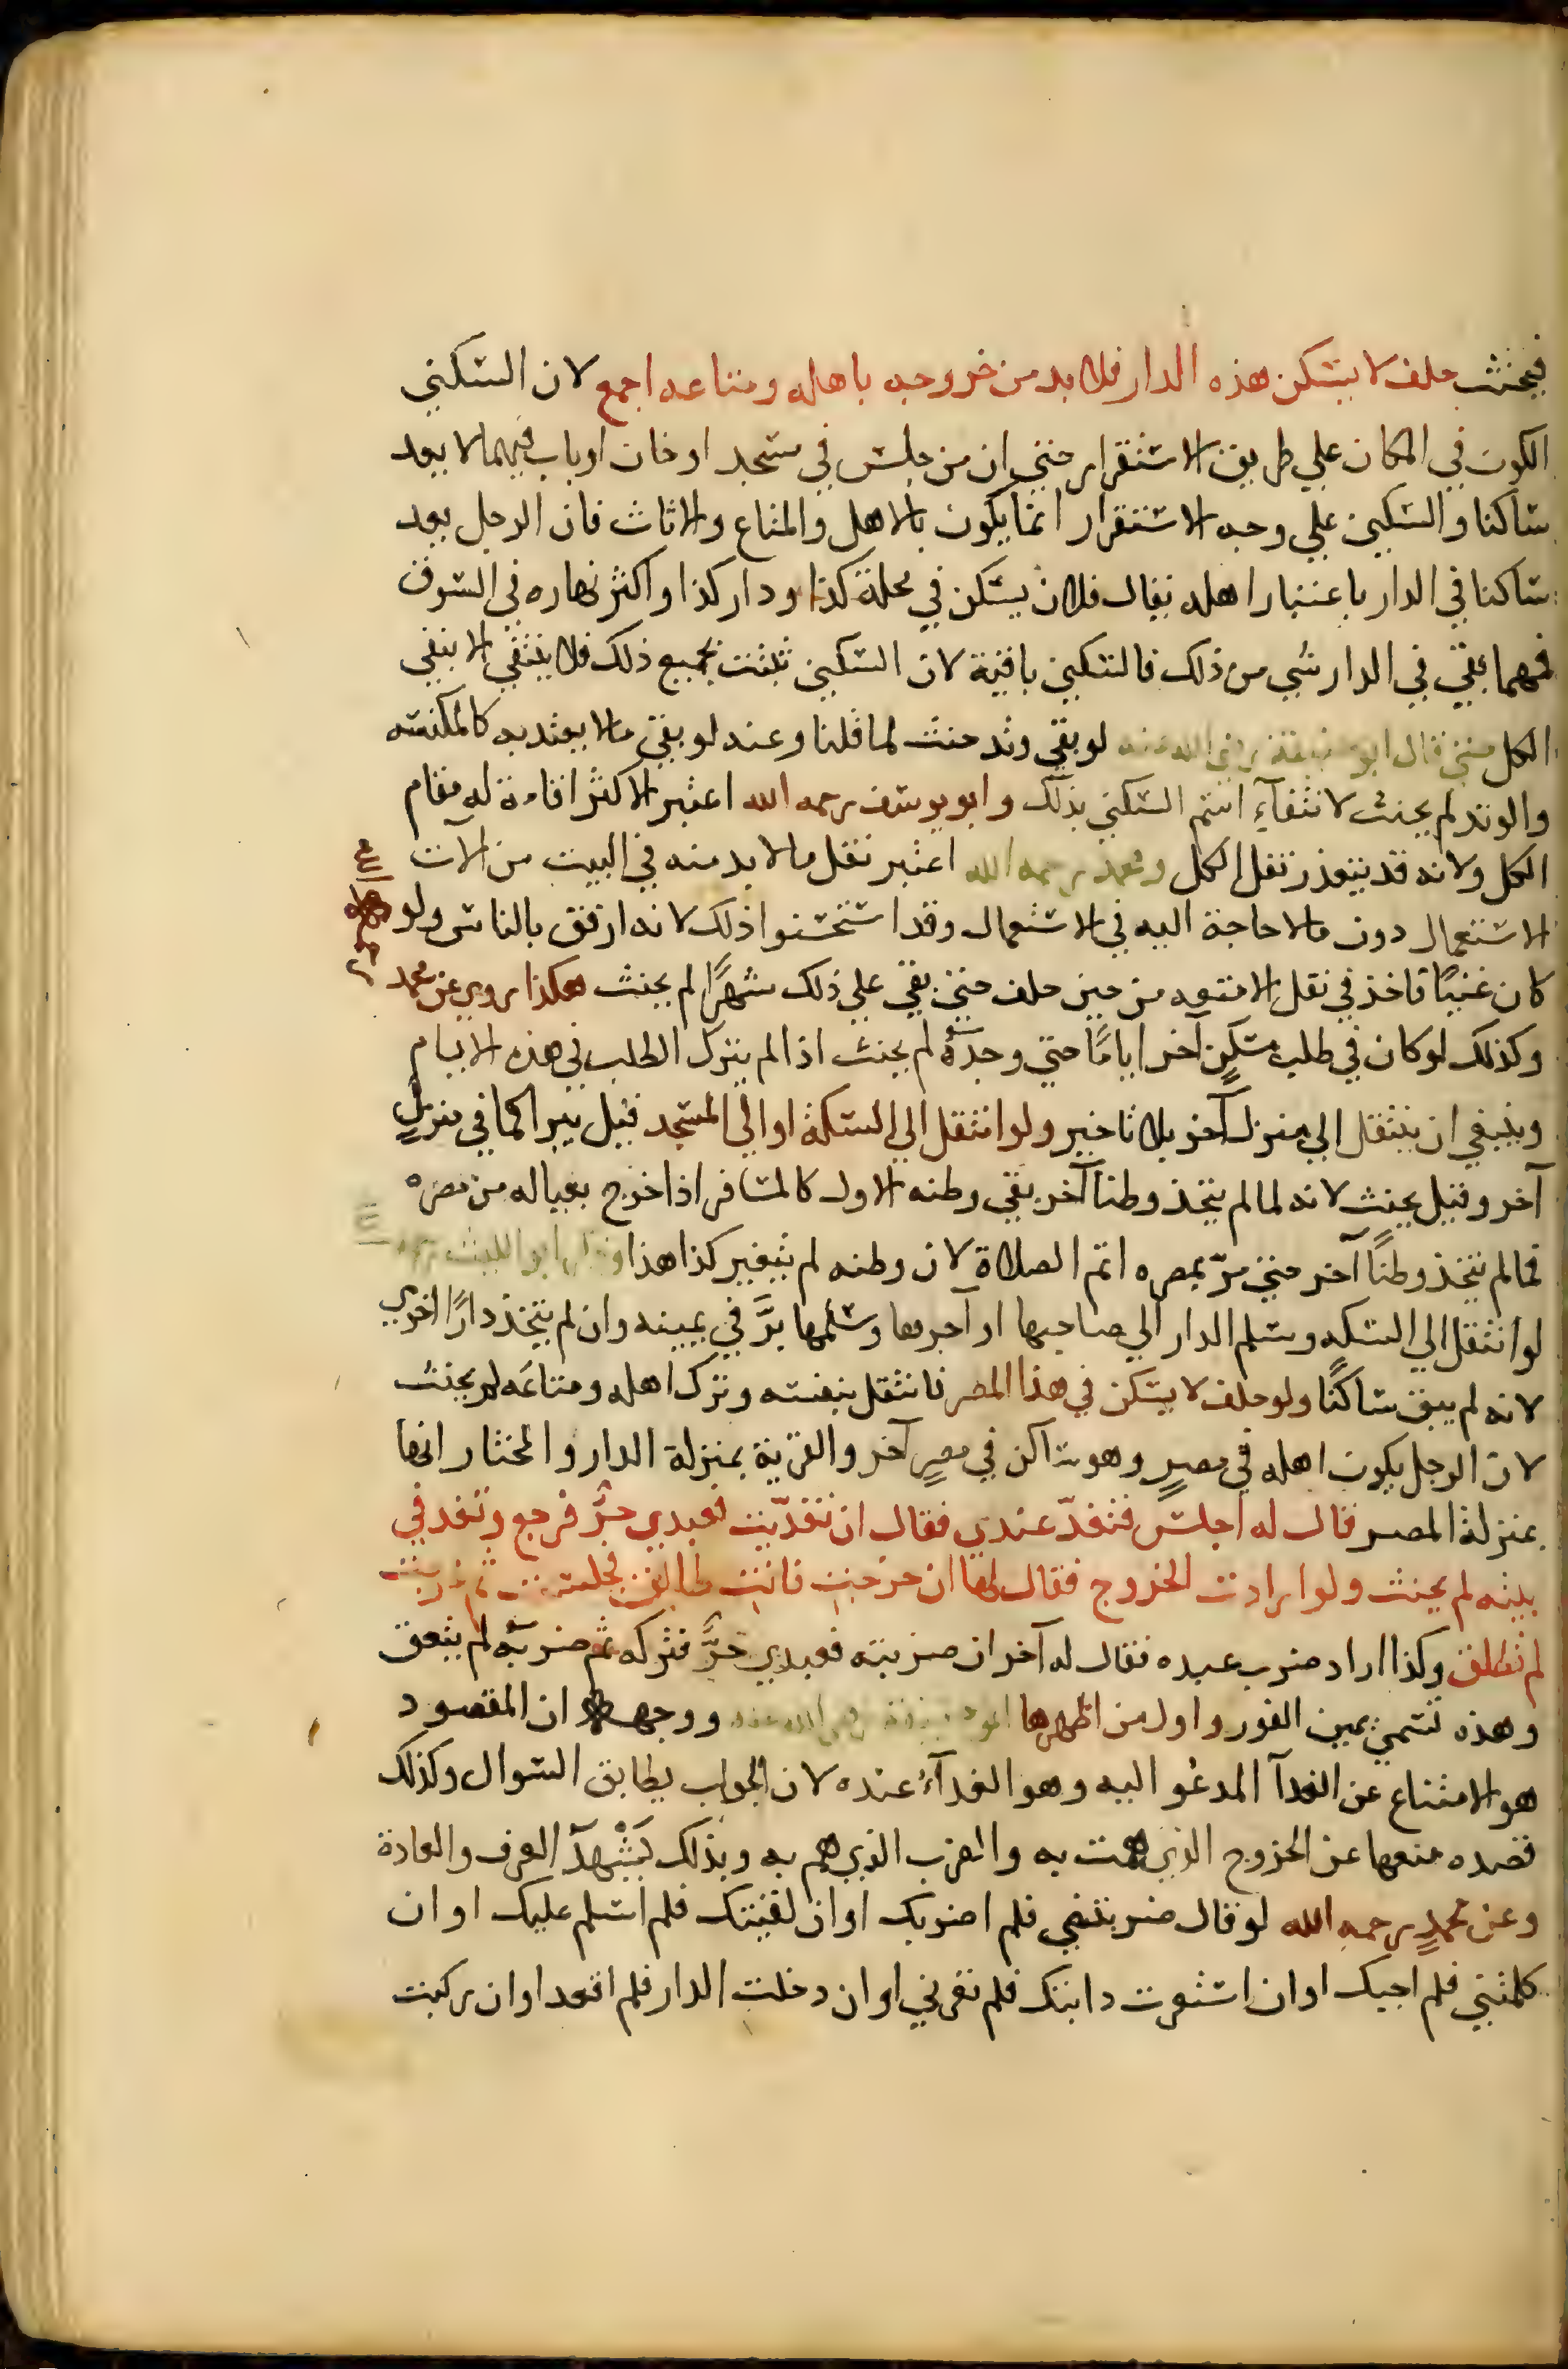 فيحنث حلف لا يسكن هذه الدار فلا بد من خروجه باهله ومتاعه اجمع لان السكني
الكون في المكان علي طريق الاستقرار حتي ان من جلس في مسجد او خان او بات فيهما لا يعد
ساكنا والسكني علي وجه الاستقرار انما يكون بالاهل والمتاع والاثاث فان الرجل يعد
ساكنا في الدار باعتبار اهله يقال فلان يسكن في محلة كذا ودار كذا واكثر نهاره في السوق
فمهما بقي في الدار شي من ذلك فالسكني باقية لان السكني تثبت بجميع ذلك فلا ينتفي الا بنفي
الكل حتي قال ابو حنيفة رضي الله عنه لو بقي وتد حنث لما قلنا وعنه لو بقي ما لا يعتد به كالمكنسه
والوتد لم يحنث لانتفآء اسم السكني بذلك وابو يوسف رحمه الله اعتبر الاكثر اقامة له مقام
الكل ولانه قد يتعذر نقل الكل ومحمد رحمه الله اعتبر نقل ما لا بد منه في البيت من الات
الاستعمال دون ما لا حاجة اليه في الاستعمال وقد استحسنوا ذلك لانه ارفق بالناس ولو
كان غنيًا فاخذ في نقل الامتعه من حين حلف حتي بقي علي ذلك شهرًا لم يحنث هكذا روي عن محمد
وكذلك لو كان في طلب مسكنٍ آخر ايامًا حتي وجده لم يحنث اذا لم يترك الطلب في هذه الايام
وينبغي ان ينتقل الي منزل آخر بلا تاخير ولو انتقل الي السكة او الي المسجد قيل يبر اكما في منزلٍ
آخر وقيل يحنث لانه لما لم يتخذ وطنا آخر بقي وطنه الاول كالمسافر اذا خرج بعياله من مصره
فما لم يتخذ وطنًا آخر حتي مرّ بمصره اتم الصلاة لان وطنه لم يتغير كذا هذا وقال ابو الليث رحمه
لو انتقل الي السكه وسلم الدار الي صاحبها او آجرها وسلمها برَّ في يمينه وان لم يتخذ دارًا اخري
لانه لم يبق ساكنًا ولو حلف لا يسكن في هذا المصر فانتقل بنفسه وترك اهله ومتاعَه لم يحنث
لان الرجل يكون اهله في مصرٍ وهو ساكن في مصرٍ آخر والقرية بمنزلة الدار والمختار انها
بمنزلة المصر قال له اجلس فتغدّ عندي فقال ان تغدّيت فعبدي حرٌّ فرجع وتغد في
بيته لم يحنث ولو ارادت الخروج فقال لها ان خرجت فانت طالق فجلست ثم خرجت
لم تطلق وكذا اراد ضرب عبده فقال له آخر ان ضربته فعبدي حرٌّ فتركه ثم ضربه لم يعتق
وهذه تسمي يمين الفور واول من اظهرها ابو حنيفة رضي الله عنه ووجهه ان المقصود
هو الامتناع عن الغدآ المدعُو اليه وهو الغدآءُ عنده لان الجواب يطابق السوال وكذلك
قصده منعها عن الخروج الذي همت به والضرب الذي هم به وبذلك يَشْهدَ العرف والعادة
وعن محمدٍ رحمه الله لو قال ضربتني فلم اضربك او ان لقيتك فلم اسلم عليك او ان
كلمتني فلم اجبك او ان استعرت دابتك فلم تعرني او ان دخلت الدار فلم اقعد او ان ركبت